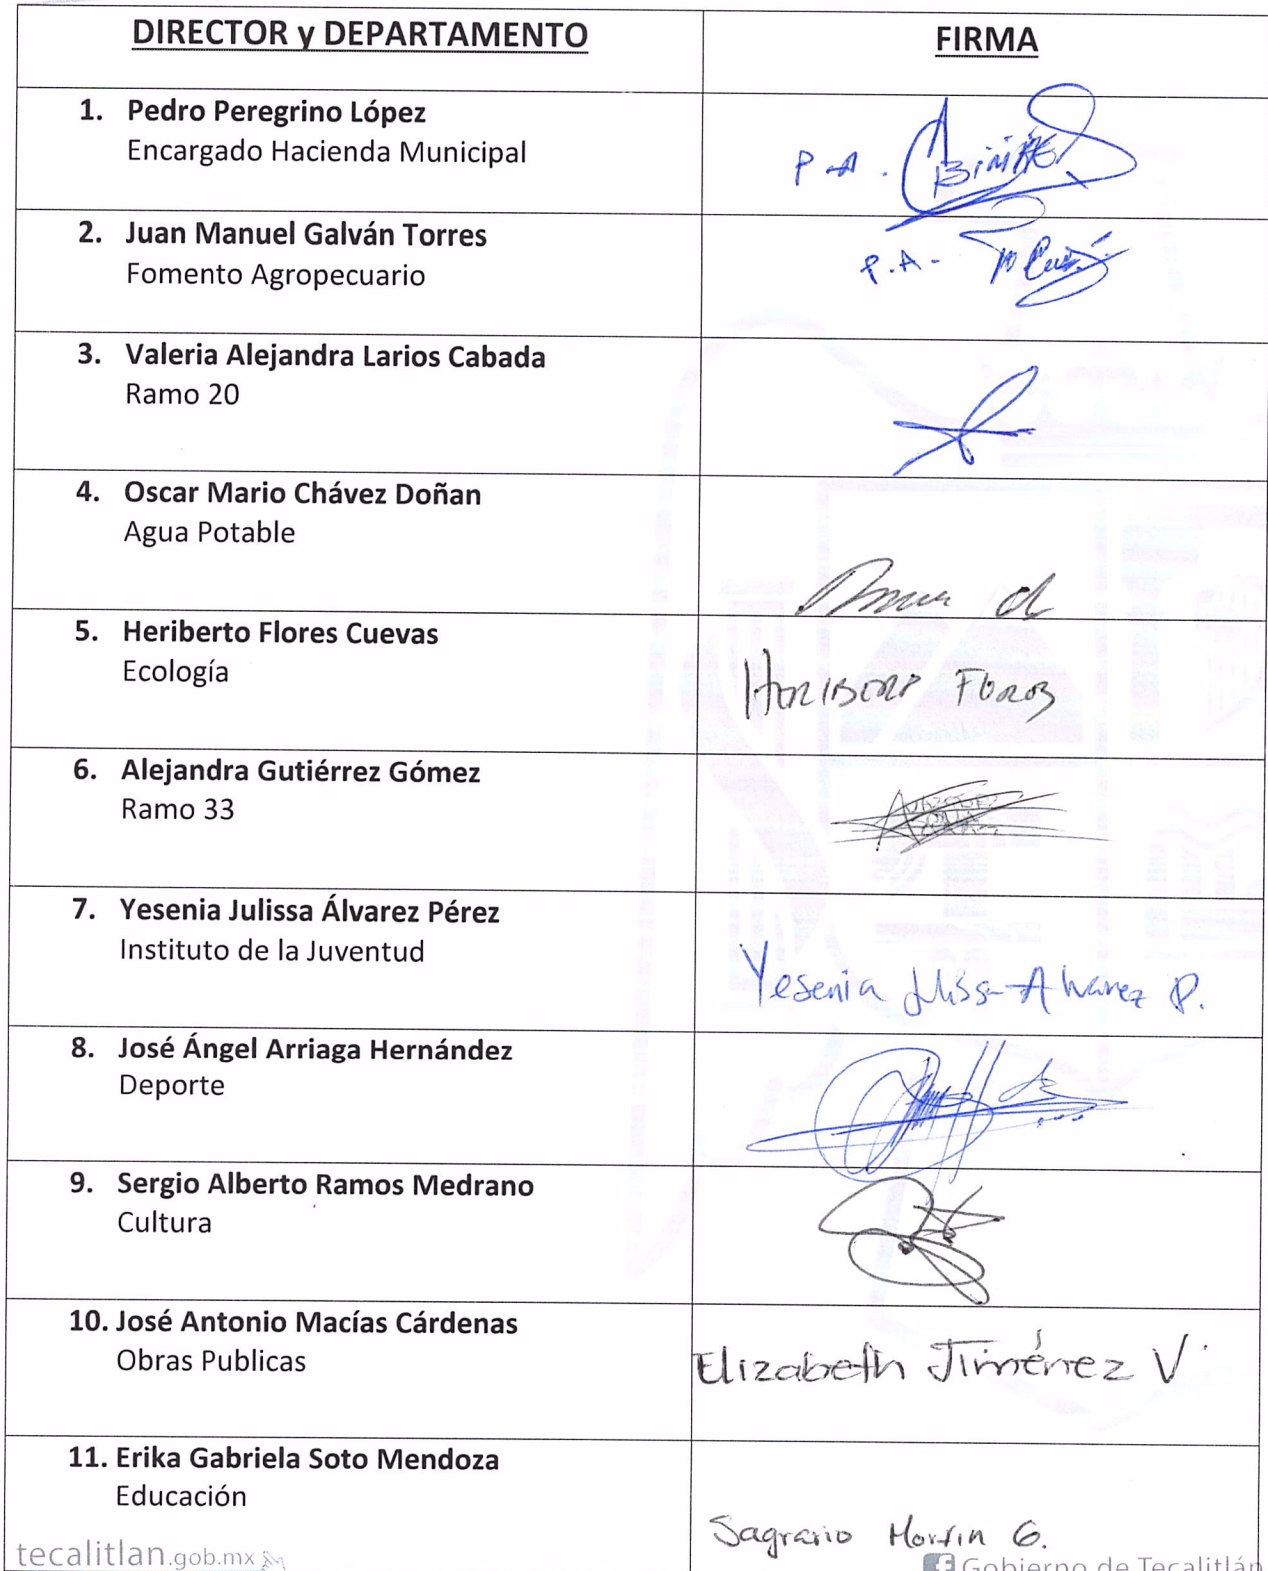 DIRECTOR y DEPARTAMENTO
FIRMA
1. Pedro Peregrino López
Encargado Hacienda Municipal
P.A.
2. Juan Manuel Galván Torres
Fomento Agropecuario
P.A-
3. Valeria Alejandra Larios Cabada
Ramo 20
4. Oscar Mario Chávez Doñan
Agua Potable
5. Heriberto Flores Cuevas
Ecología
6. Alejandra Gutiérrez Gómez
Ramo 33
7. Yesenia Julissa Álvarez Pérez
Instituto de la Juventud
Yesenia Julissa Alvarez P.
8. José Ángel Arriaga Hernández
Deporte
9. Sergio Alberto Ramos Medrano
Cultura
10. José Antonio Macías Cárdenas
Obras Publicas
Elizabeth Jiménez V
11. Erika Gabriela Soto Mendoza
Educación
Sagrario Morfin G.
tecalitlan.gob.mx
Gobierno de Tecalitlán